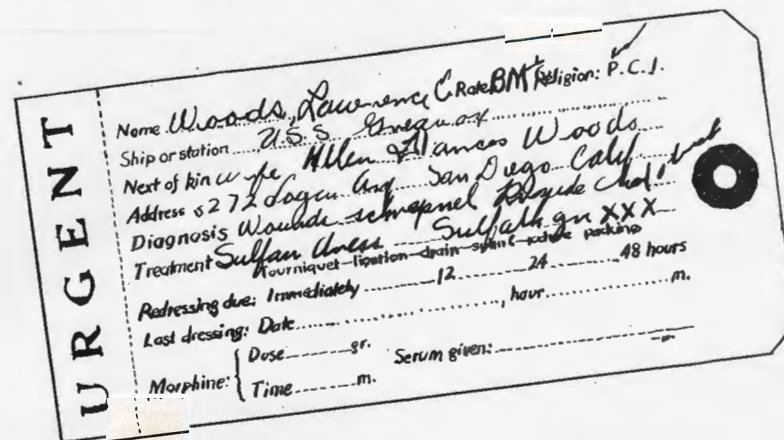 URGENT
Name Woods, Lawrence C Rate BM Religion: P.C.J.
Ship or station U.S.S
Next of kin wife Frances Woods
Address 5272 Logan San Diego Calif
Diagnosis Wounds
Treatment Sulfan Sulfath gr XXX
Tourniquet-ligation-drain-splint packing
Redressing due: Immediately 12 24 48 hours
Last dressing: Date , hour m.
Morphine: { Dose gr. Serum given:
Time m.